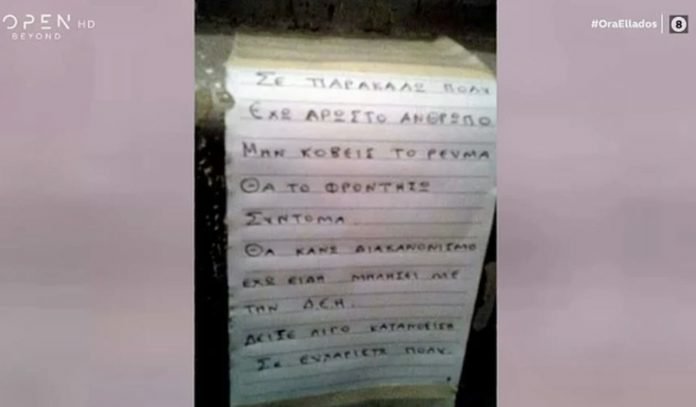 OPEN HD
BEYOND
#OraEllados
8
ΣΕ ΠΑΡΑΚΑΛΩ ΠΟΛΥ
ΕΧΩ ΑΡΩΣΤΟ ΑΝΘΡΩΠΟ
ΜΗΝ ΚΟΒΕΙΣ ΤΟ ΡΕΥΜΑ
ΘΑ ΤΟ ΦΡΟΝΤΗΣΩ
ΣΥΝΤΟΜΑ
ΘΑ ΚΑΝΩ ΔΙΑΚΑΝΟΝΙΣΜΟ
ΕΧΩ ΕΙΔΗ ΜΗΛΗΣΕΙ ΜΕ
ΤΗΝ Δ.Ε.Η.
ΔΕΙΞΕ ΛΙΓΟ ΚΑΤΑΝΟΕΙΣΗ
ΣΕ ΕΥΧΑΡΙΣΤΩ ΠΟΛΥ.